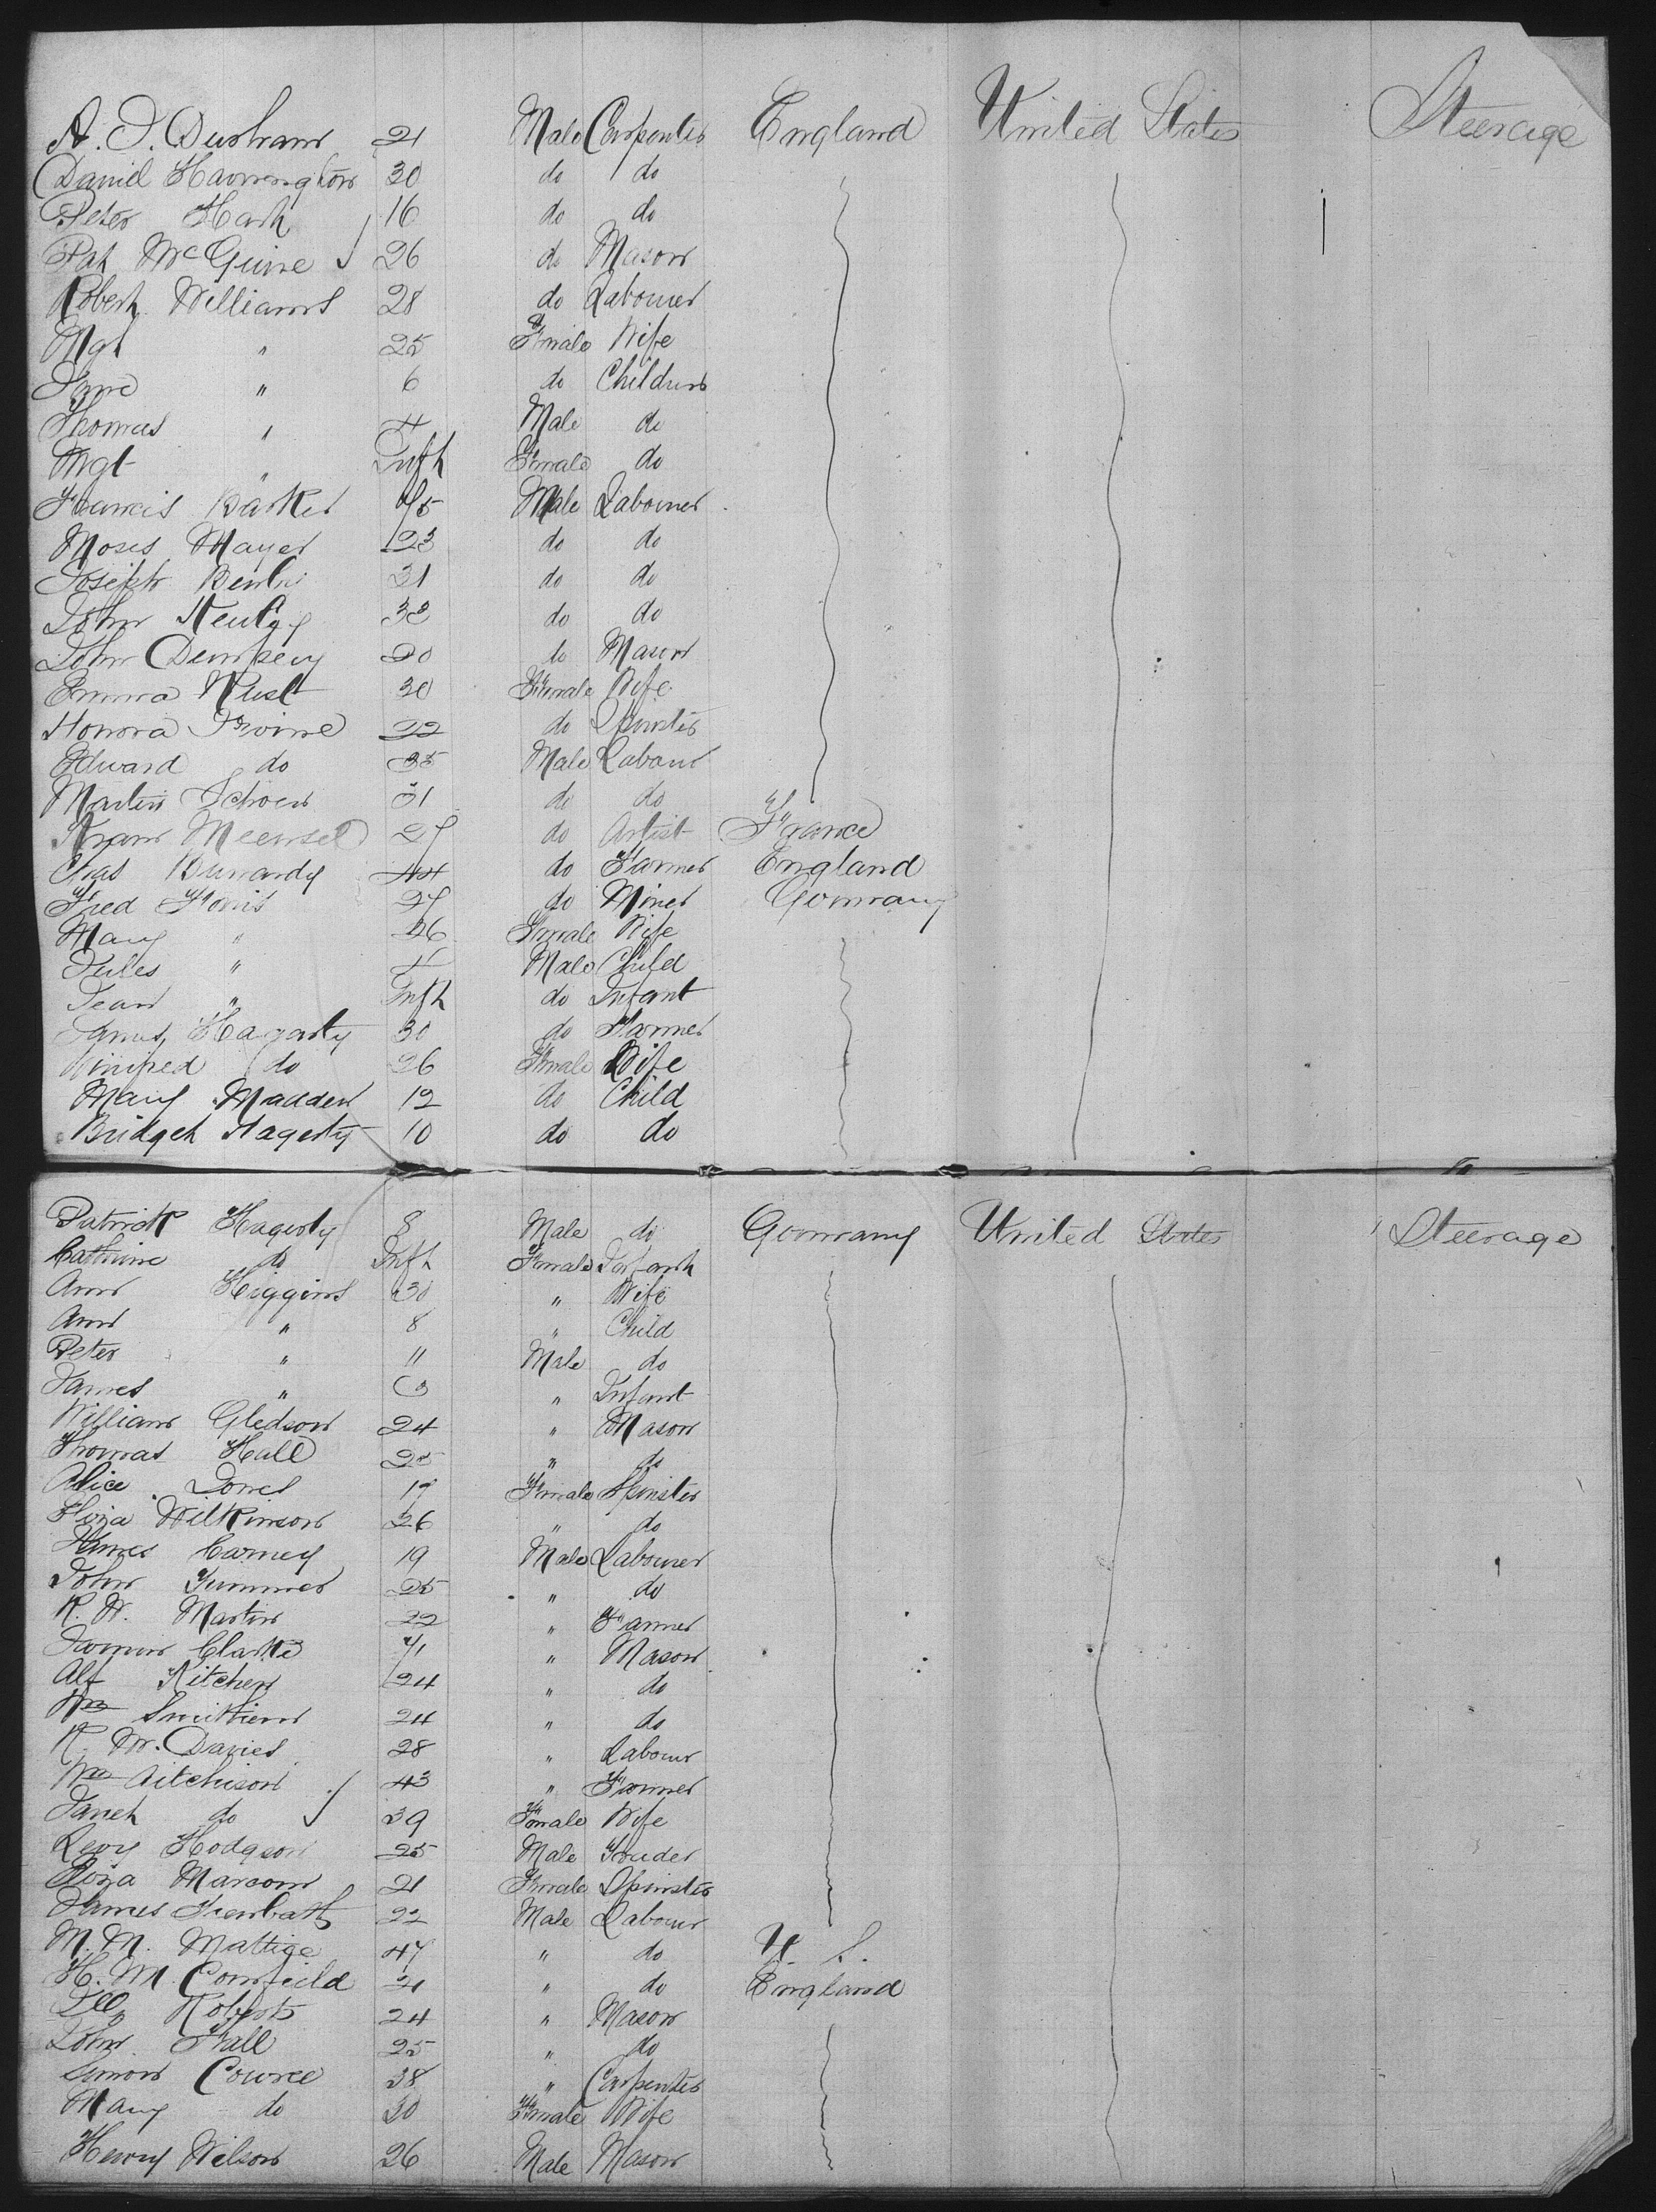 A. J. Durham 21 Male Carpenter England United States Steerage
Daniel Havrington 30 do do
Peter Hash 16 do do
Pat McGuire 26 do Mason
Robert Williams 28 do Labourer
Mgt " 25 Female Wife
Jane " 6 do Children
Thomas " 4 Male do
Mgt " Inft Female do
Francis Barker 45 Male Labourer
Moses Mayer 23 do do
Joseph 31 do do
John 33 do do
John Dempsey 20 do Mason
Emma West 30 Female Wife
Honora Irvine 22 do Spinster
Edward do 35 Male Labour
Martin Schoen 31 do do
Meensel 27 do Artist France
Chas Burrardy 44 do Farmer England
Fred Floris 27 do Miner Germany
Mary " 26 Female Wife
Jules " 4 Male Child
Jean " Inft do Infant
James Hagarty 30 do Farmer
Winifred do 26 Female Wife
Mary Madden 12 do Child
Bridget Hagerty 10 do do
Patrick Hagerty 8 Male do Germany United States Steerage
Catherine do Inft Female Infant
Ann Higgins 30 " Wife
Ann " 8 " Child
Peter " 11 Male do
James " 3 " Infant
William Gledson 24 " Mason
Thomas Hall 25 " do
Alice Jones 19 Female Spinster
Eliza Wilkinson 26 " do
James Carney 19 Male Labourer
John Summer 25 " do
R. W. Martin 22 " Farmer
Clarke 41 " Mason
Alf Kitchen 24 " do
Wm Smithern 24 " do
R. W. Davies 28 " Labour
Wm Aitchison 43 " Farmer
Janet do 39 Female Wife
Levy Hodgson 25 Male
Eliza Marcom 21 Female Spinster
James Trenbath 22 Male Labour
M. M. Mattige 47 " do U. S.
H. M. Cornfield 21 " do England
Roberts 24 " Mason
John Hall 25 " do
Simon Cource 38 " Carpenter
Mary do 30 Female Wife
Henry Wilson 26 Male Mason